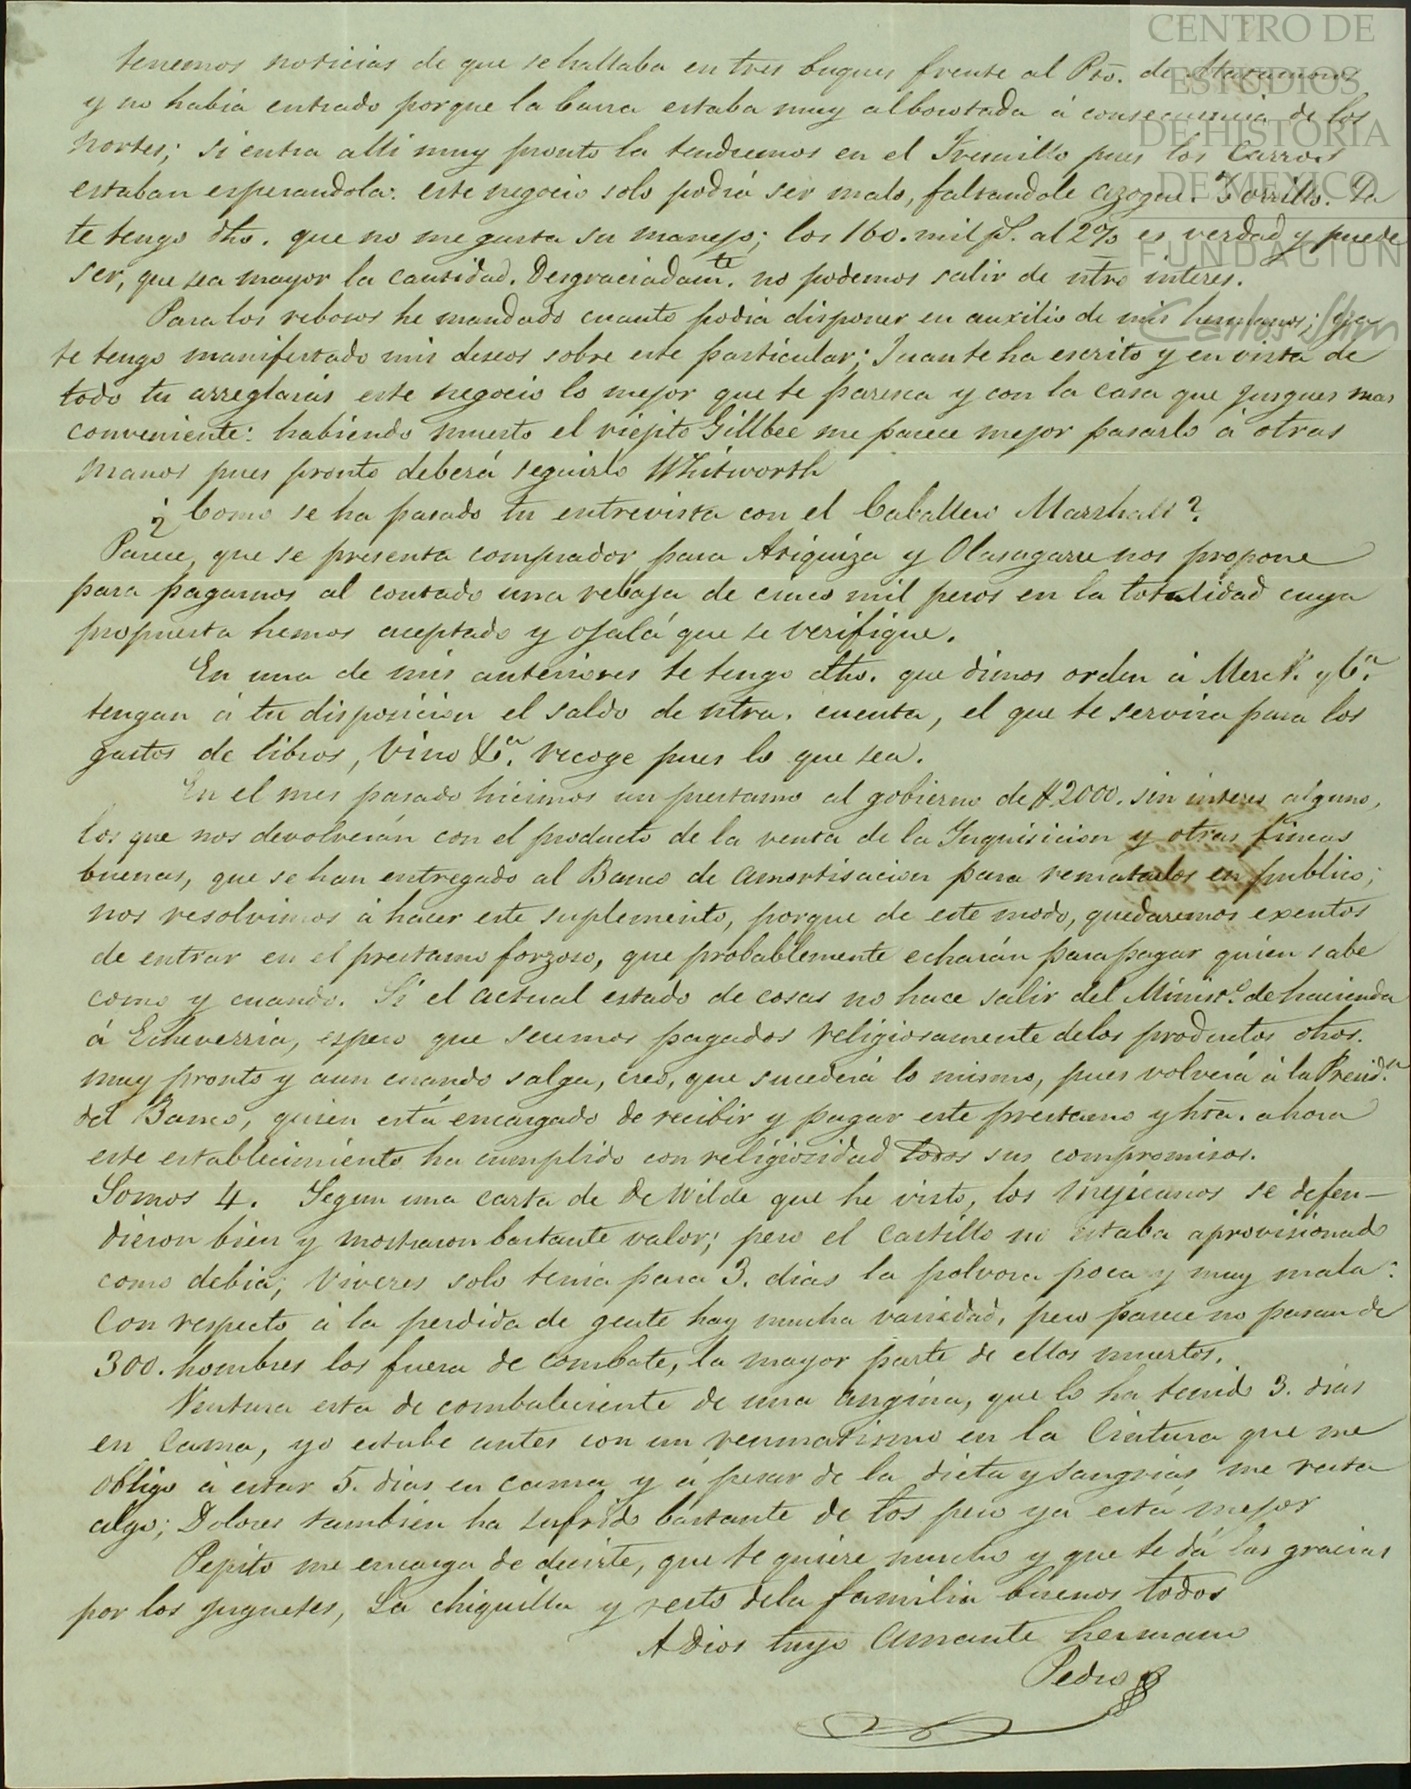 CENTRO DE
ESTUDIOS
DE HISTORIA
DE MEXICO
FUNDACION
Carlos Slim
tenemos noticias de que se hallaba en tres buques frente al Pto. de Matamoros
y no habia entrado porque la barra estaba muy alborotada á consecuencia de los
Nortes; si entra alli muy pronto la tendremos en el Fresnillo pues los Carros
estaban esperandola: este negocio solo podrá ser malo, faltandole azogue. Torrillo. Ya
te tengo dho. que no me gusta su manejo; los 160. mil ps. al 2% es verdad y puede
ser, que sea mayor la cantidad. Desgraciadamte. no podemos salir de ntro interes.
Para los rebosos he mandado cuanto podia disponer en auxilio de mis hermanos; ya
te tengo manifestado mis deseos sobre este particular; Juan te ha escrito y en vista de
todo tu arreglarás este negocio lo mejor que te paresca y con la casa que jusgues mas
conveniente: habiendo muerto el viejito Gillbee me parece mejor pasarlo á otras
manos pues pronto deberá seguirlo Whitworth
¿Como se ha pasado tu entrevista con el Caballero Marshall?
Parece, que se presenta comprador para Ariquiza y Olasagarre nos propone
para pagarnos al contado una rebaja de cinco mil pesos en la totalidad cuya
propuesta hemos aceptado y ojalá que se verifique.
En una de mis anteriores te tengo dho. que dimos orden á Merck. y Ca.
tengan á tu disposicion el saldo de ntra. cuenta, el que te servira para los
gastos de libros, vino &a. recoge pues lo que sea.
En el mes pasado hicimos un prestamo al gobierno de $2000. sin interes alguno,
los que nos devolverán con el producto de la venta de la Inquisicion y otras fincas
buenas, que se han entregado al Banco de amortisacion para rematarlos en publico;
nos resolvimos á hacer este suplemento, porque de este modo, quedaremos exentos
de entrar en el prestamo forzoso, que probablemente echarán para pagar quien sabe
como y cuando. Si el actual estado de cosas no hace salir del Ministo. de hacienda
á Echeverria, espero que seremos pagados religiosamente de los productos dhos.
muy pronto y aun cuando salga, creo, que sucederá lo mismo, pues volverá á la Presida.
del Banco, quien está encargado de recibir y pagar este prestamo y hta. ahora
este establecimiento ha cumplido con religiosidad todos sus compromisos.
Somos 4. Segun una carta de De Wilde que he visto, los mejicanos se defen-
dieron bien y mostraron bastante valor; pero el Castillo no estaba aprovisionado
como debia; viveres solo tenia para 3. dias la polvora poca y muy mala:
Con respecto á la perdida de gente hay mucha variedad, pero parece no pasan de
300. hombres los fuera de combate, la mayor parte de ellos muertos.
Ventura esta de combaleciente de una angina, que lo ha tenido 3. dias
en cama, yo estube antes con un reumatismo en la Cintura que me
obligo á estar 5. dias en cama y á pesar de la dieta y sangrias, me resta
algo; Dolores tambien ha sufrido bastante de tos pero ya está mejor
Pepito me encarga de decirte, que te quiere mucho y que te dá las gracias
por los juguetes, La chiquilla y resto dela familia buenos todos
A Dios tuyo amante hermano
Pedro